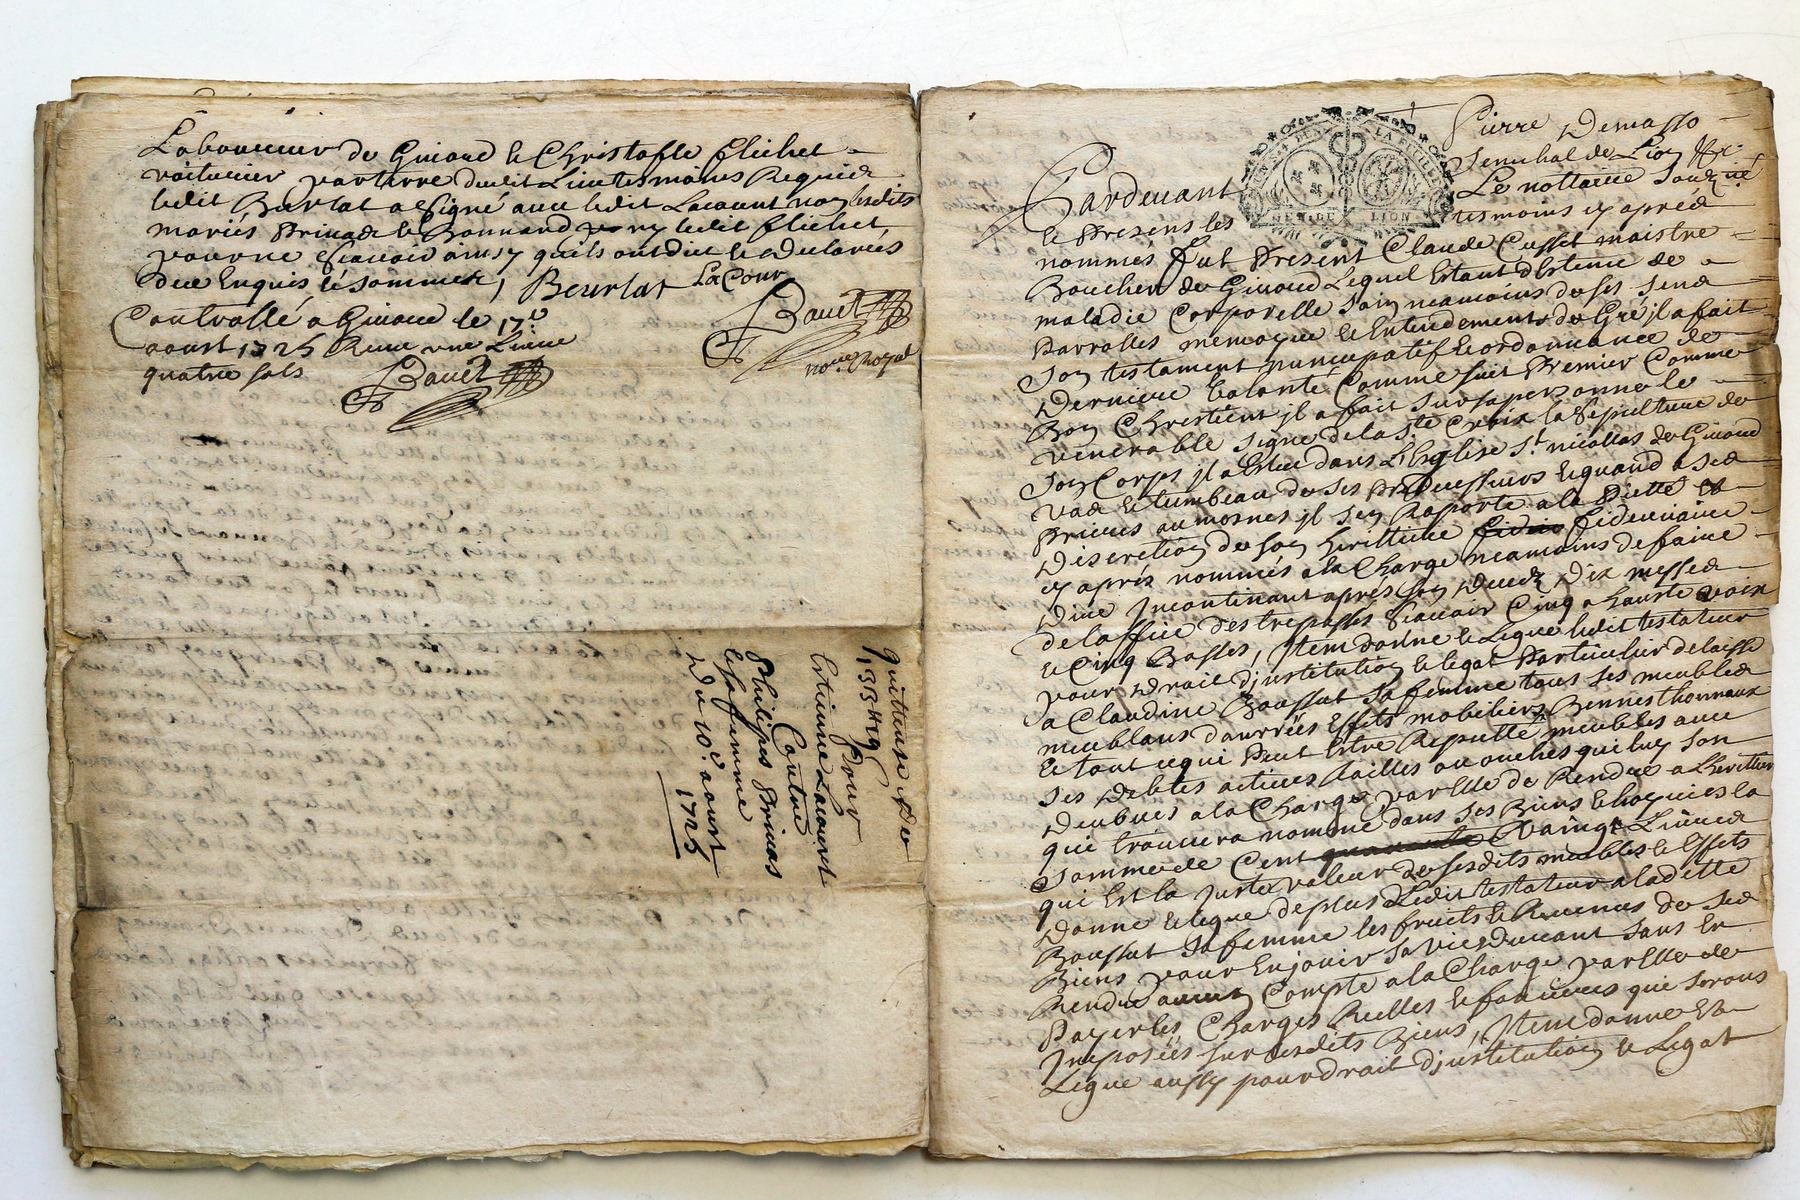 Laboureur de Givord & Christofle flichet
voiturier par terre dudit Lieu tesmoins Requis
ledit Burlat a signé avec ledit Lacourt non lesdits
mariés Brivas & Bonnard ny ledit flichet
pour ne scavoir ainsy quils ont dit & declarés
de ce Enquis & sommés, Beurlat LaCour
Controllé a Givord le 17e
aoust 1725 Receu une Livre
quatre sols
Bauet
Bauet
nore Royal
quittance de
155 ₶ 19
pour
Estienne Lacourt
Contre
Philipes Brivas
& sa femme
Du 10e aoust
1725
GEN DE LION
Pierre Demasso
Senechal de Lion &c
Pardevant Le nottaire Soubzné
& Presens les tesmoins cy aprés
nommés fut Present Claude Cusset maistre
Boucher de Givord Lequel Estant destenu de
maladie Corporelle sain neamoins de ses sens
Parrolles memoyre & Entendement de Gré jl a fait
son testament nuncupatif & ordonnance de
Derniere volonté Comme suit Premier Comme
Bon Chrestient jl a fait sur sa personne le
venerable signe de la ste Croix la sepulture de
son Corps jl a Esleu dans L'Eglise st nicollas de Givord
& tumbeau de ses Predecesseurs & quand a ses
Prieres aumosnes jl s'en Raporte a la Pietté &
Discretion de son herittiere fiduciaire
cy aprés nommés a la Charge neamoins de faire
Dire Jncontinant aprés son Decedz Dix messes
de loffice des trepassés scavoir Cinq a hauste voix
& Cinq Basses, Jtem donne & Legue ledit testateur
pour Droit d'jnstitution & legat Particulier delaisse
a Claudine Boussut sa femme tous ses meubles
meublans danrrées Effets mobiliers Bennes thonneaux
& tout ce qui Peut Estre Reputté meubles avec
ses Debtes actives quiluy son
Deubües a la Charge par Elle de Rendre a Lherittier
qui trouvera nommé dans ses Biens & hoyries la
somme de Cent quarante Vaingt Livres
qui Est la juste valeur de sesdits meubles & Effets
Donne & legue de plus Ledit testateur a ladite
Boussut sa femme les fruits & Revenus de ses
Biens pour En jouir sa vie Durant sans En
Rendre aucun Compte a la Charge par Elle de
Payer les Charges Reelles & foncieres qui seront
Jmposées sur lesdits Biens, Jtem donne &
Legue aussy pour droit d'jnstitution & Legat